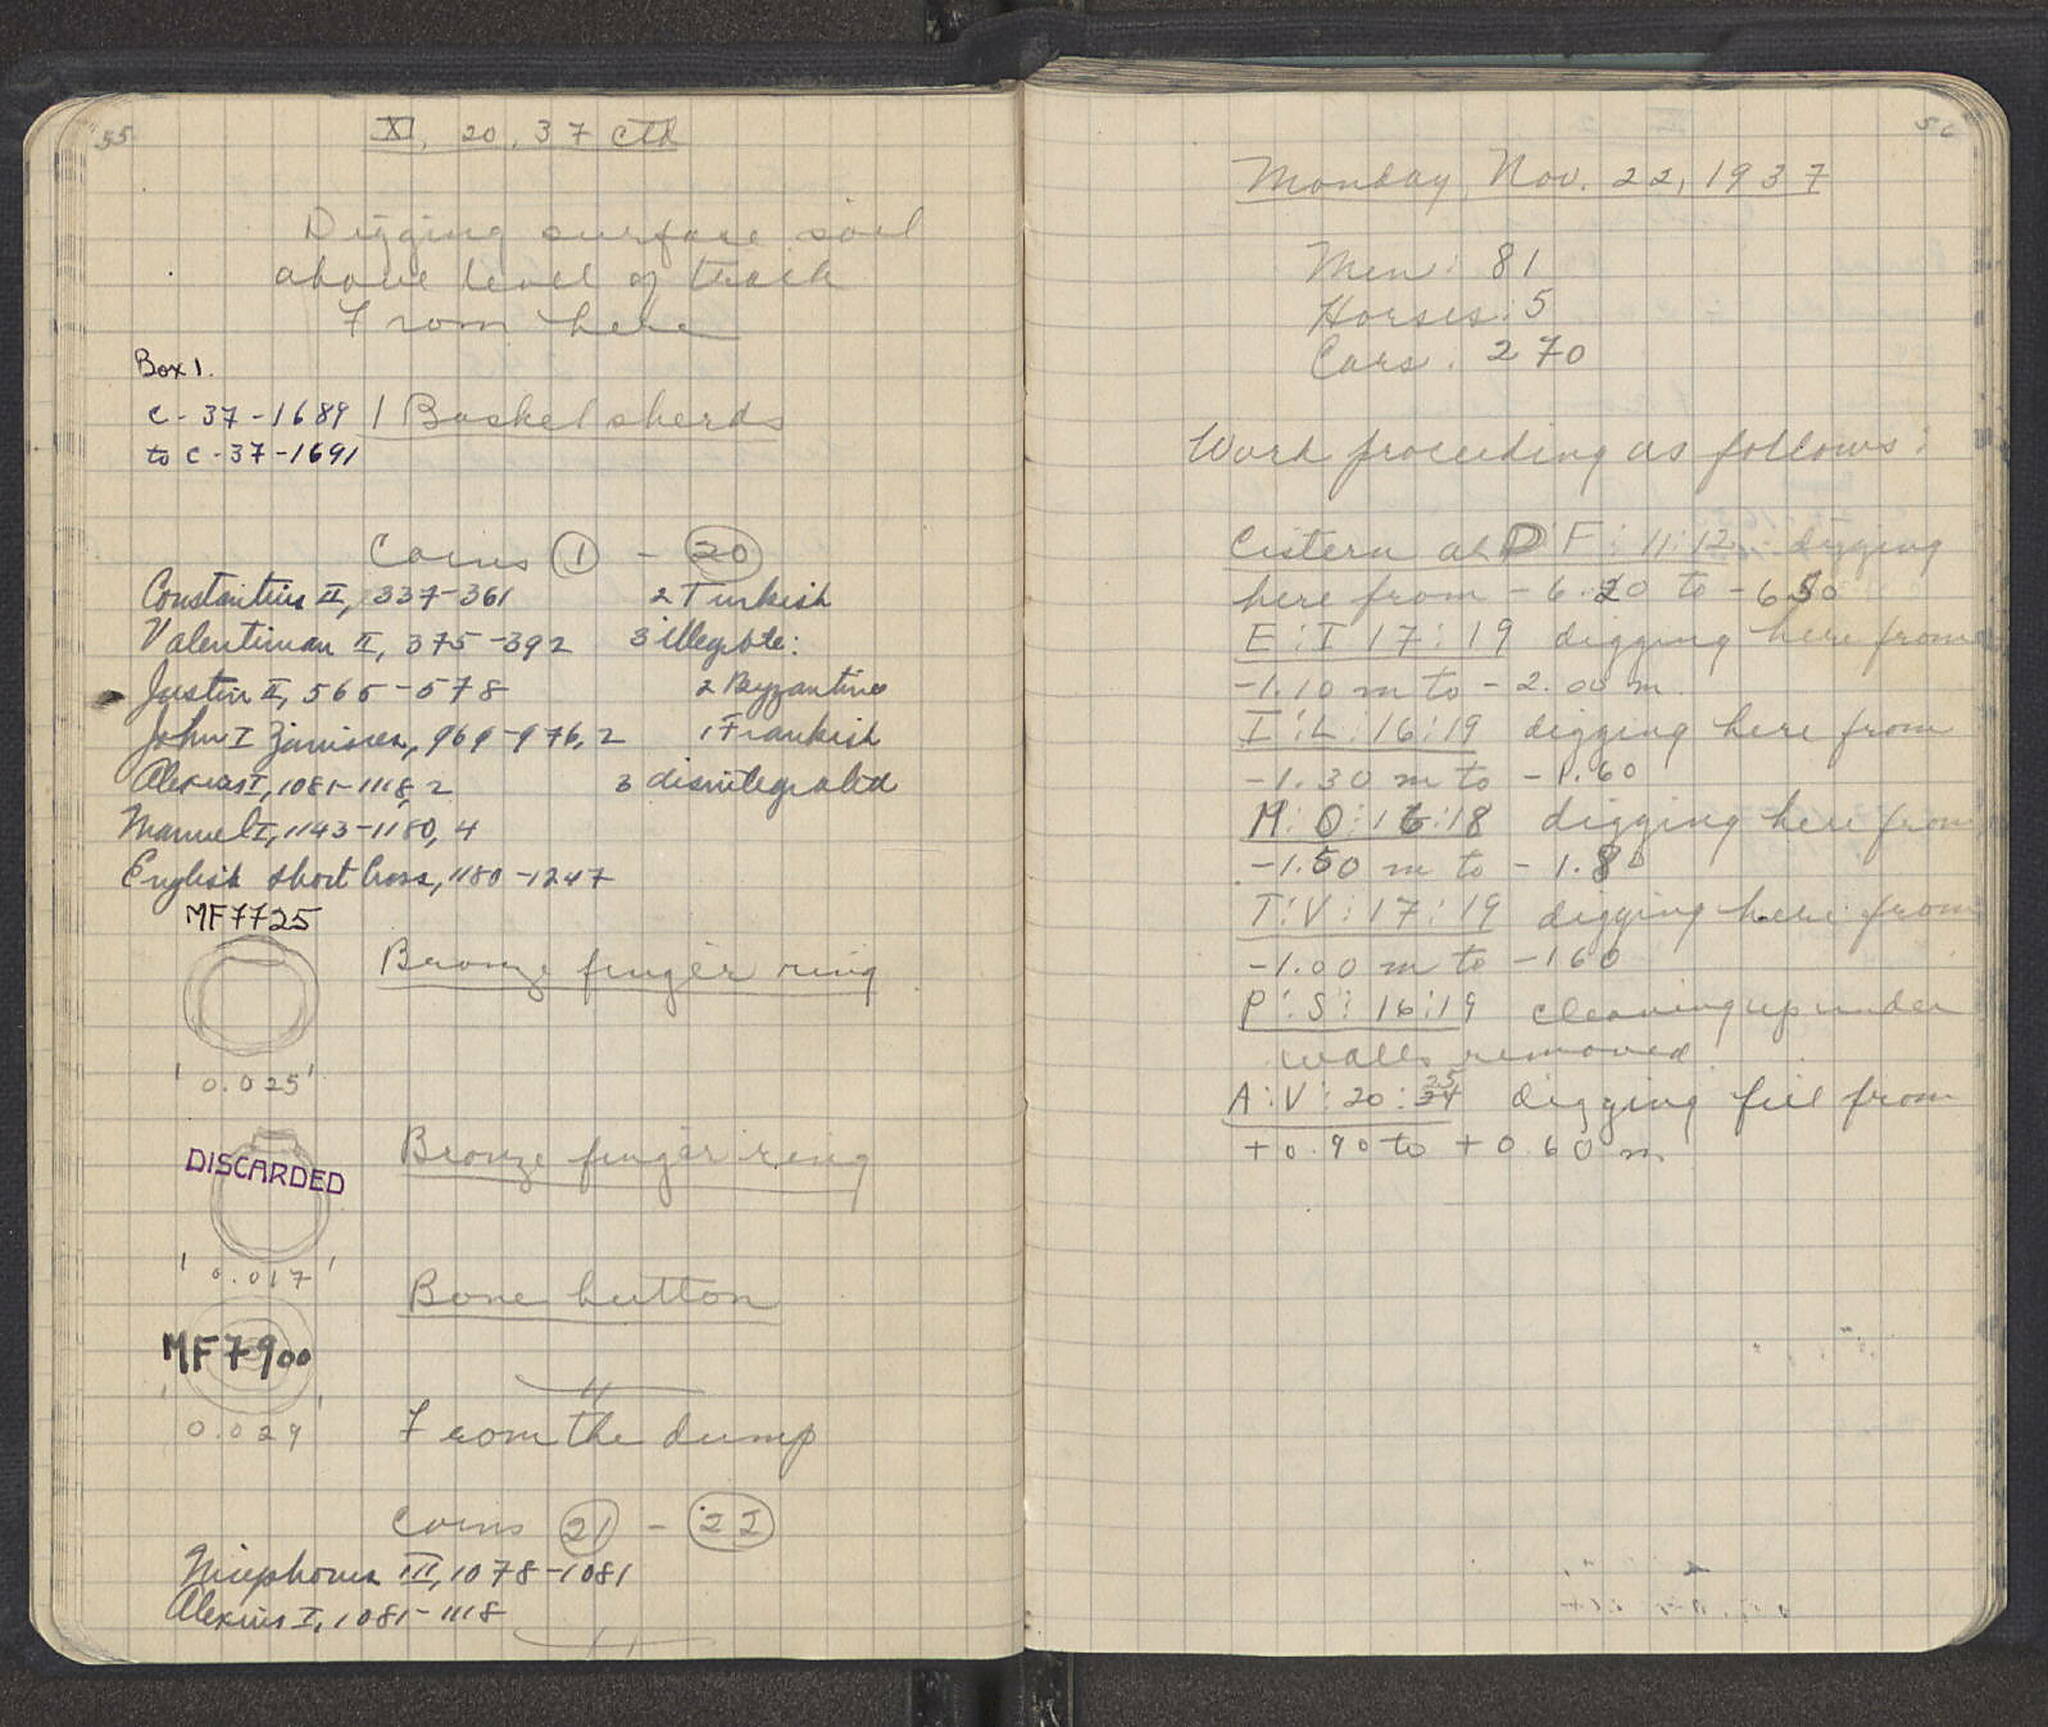 55
XI, 20, 37 ctd
Digging surface soil
above level of track
From here
Box 1.
C-37-1689 1 Basket sherds
to C-37-1691
Coins 1 - 20
Constantius II, 337-361 2 Turkish
Valentinian II, 375-392 3 illegible:
Justin II, 565-578 2 Byzantine
John I Zimisces, 969-976, 2 1 Frankish
Alexius I, 1081-1118, 2 3 disintegrated
Manuel I, 1143-1180, 4
English Short Cross, 1180-1247
MF7725
Bronze finger ring
0.025
Bronze finger ring
DISCARDED
0.017
Bone button
MF7900
0.029
From the dump
Coins 21 - 22
Nicephorus III, 1078-1081
Alexius I, 1081-1118
56
Monday, Nov. 22, 1937
Men: 81
Horses: 5
Cars: 270
Work proceeding as follows:
Cistern at D:F:11:12: digging
here from -6.20 to -6.50
E:I 17:19 digging here from
-1.10 m to -2.00 m.
I:L:16:19 digging here from
-1.30 m to -1.60
M:O:16:18 digging here from
-1.50 m to -1.80
T:V:17:19 digging here from
-1.00 m to -160
P:S:16:19 cleaning up under
walls removed
A:V:20:25 digging fill from
+0.90 to +0.60 m